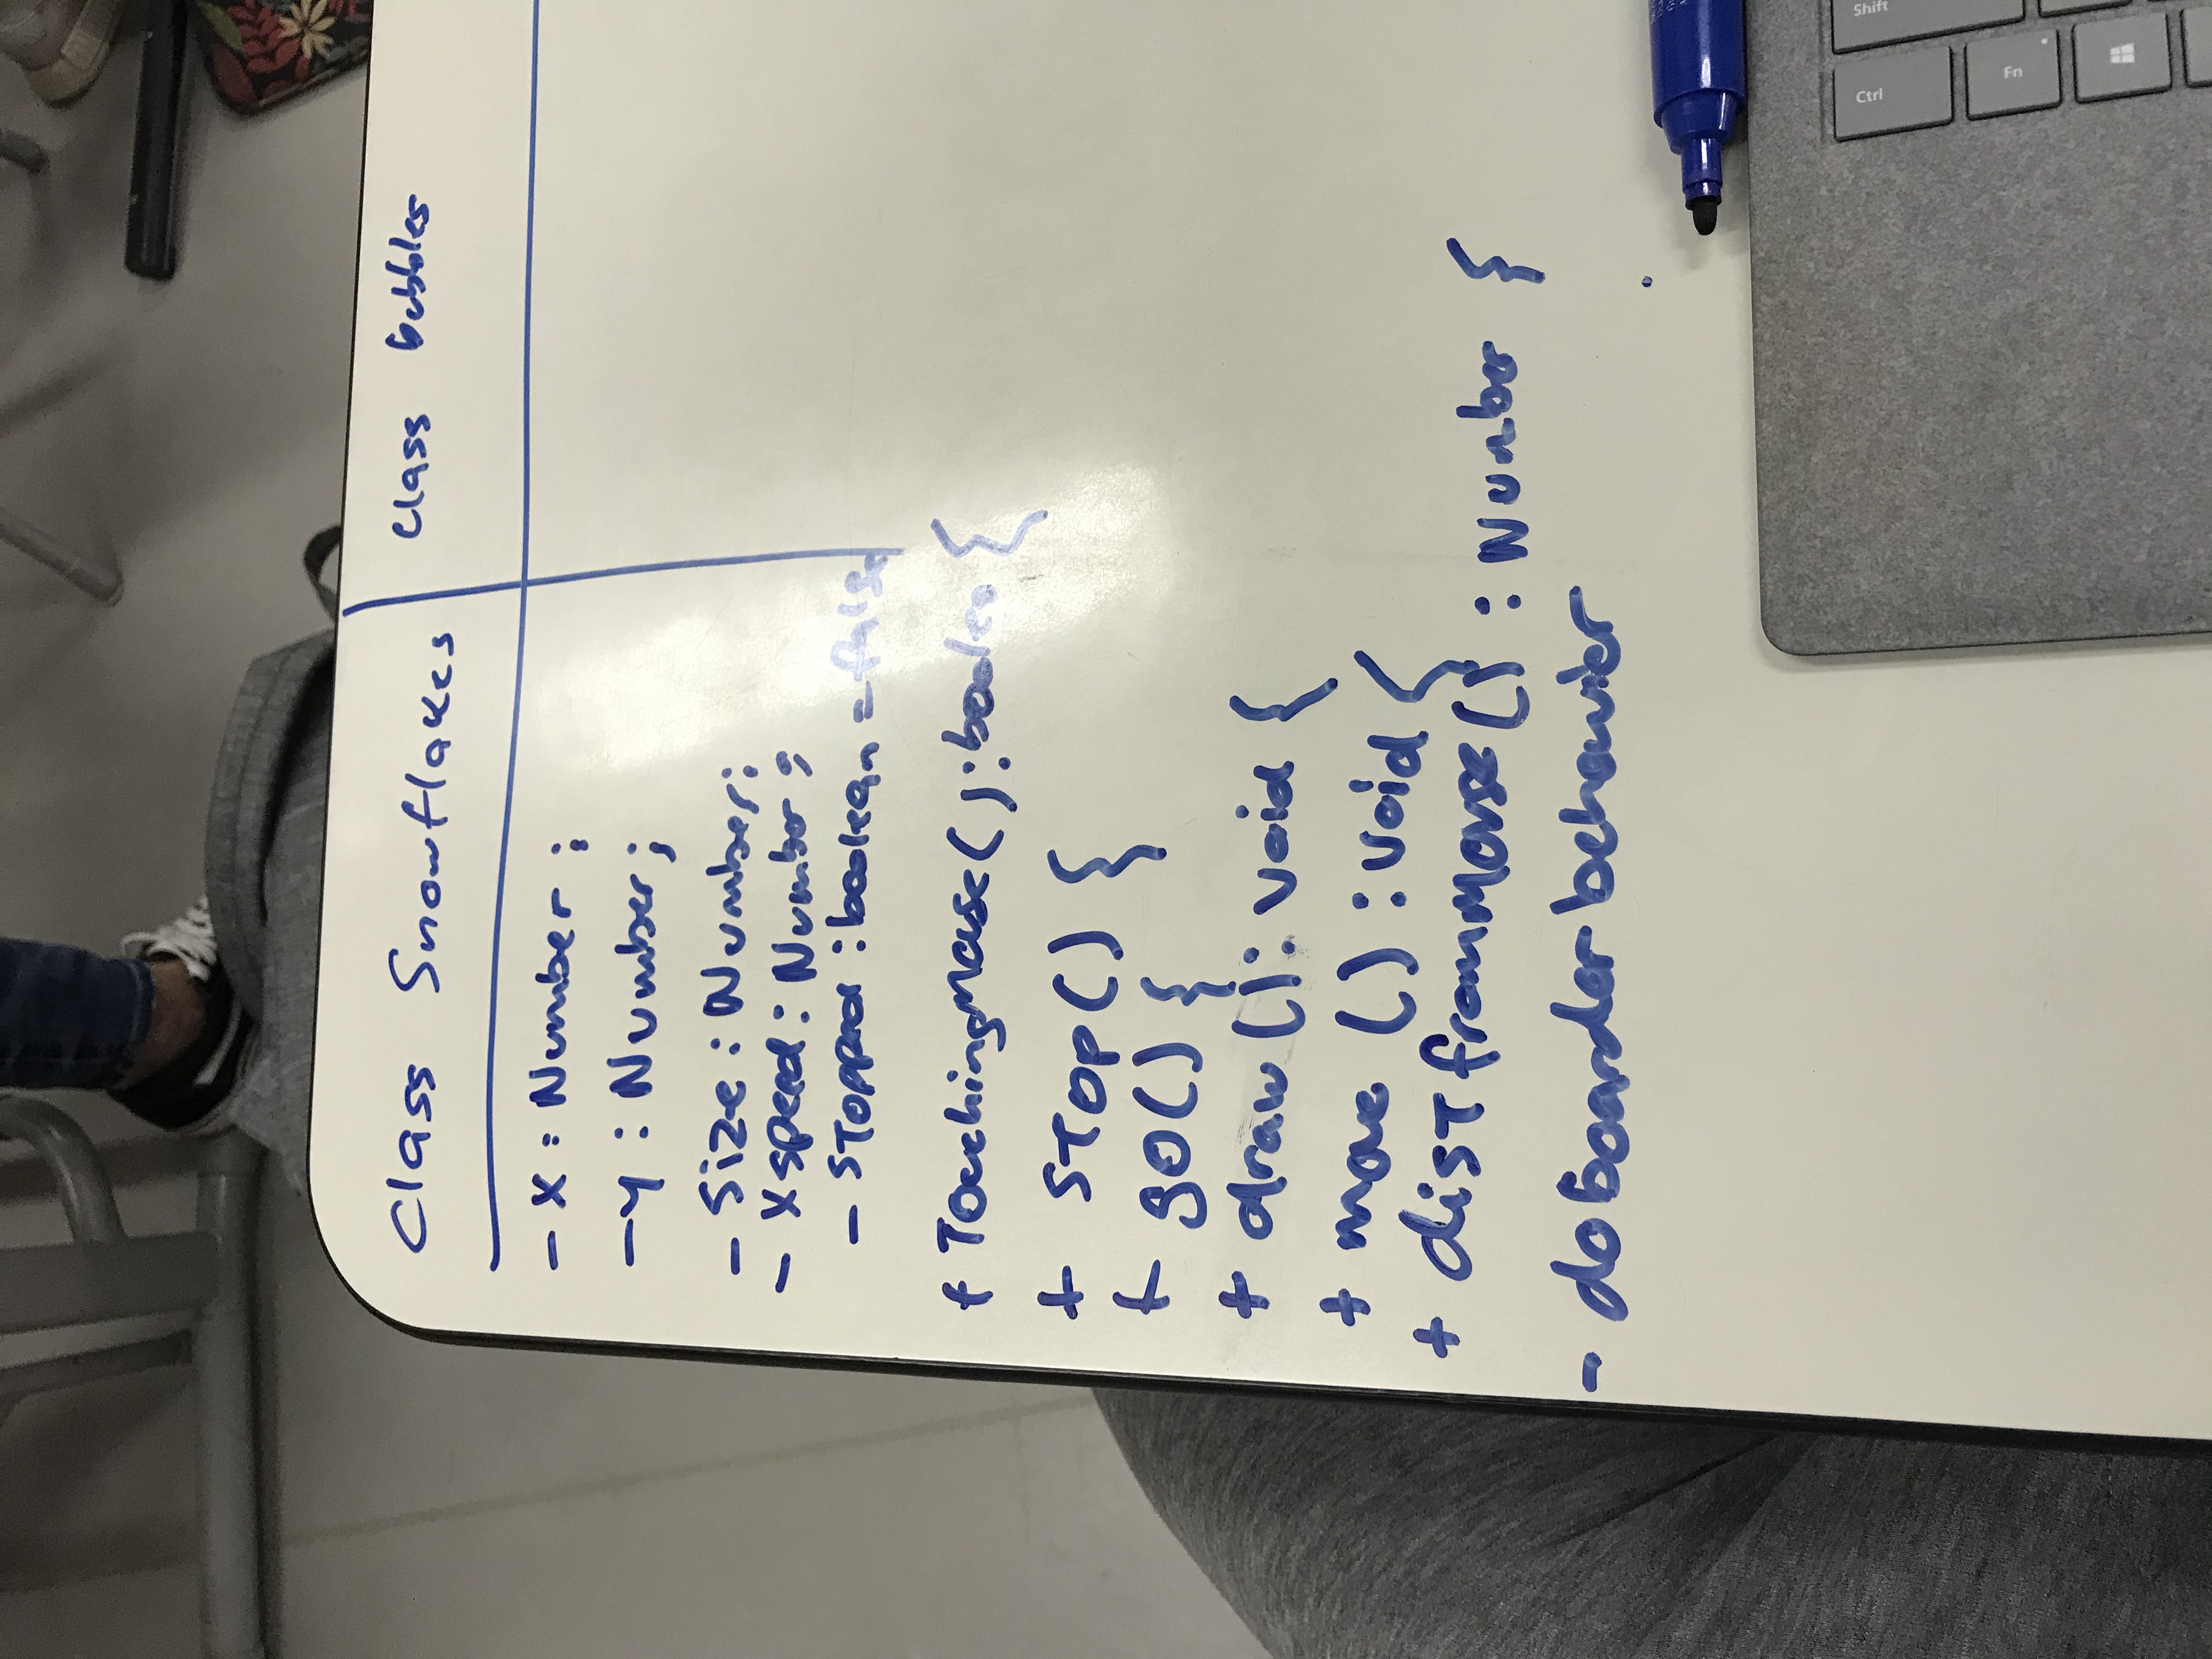 Class Snowflakes
class bubbles
- x : Number ;
- y : Number ;
- Size : Number ;
- Xspeed : Number ;
- Stopped : boolean = false
+ TouchingMouse ( ) : boolen {
+ STop ( ) {
+ go ( ) {
+ draw ( ) : void {
+ move ( ) : void {
+ distfromMouse ( ) : Number {
- doboarderbehavier
Ctrl
Shift
Fn